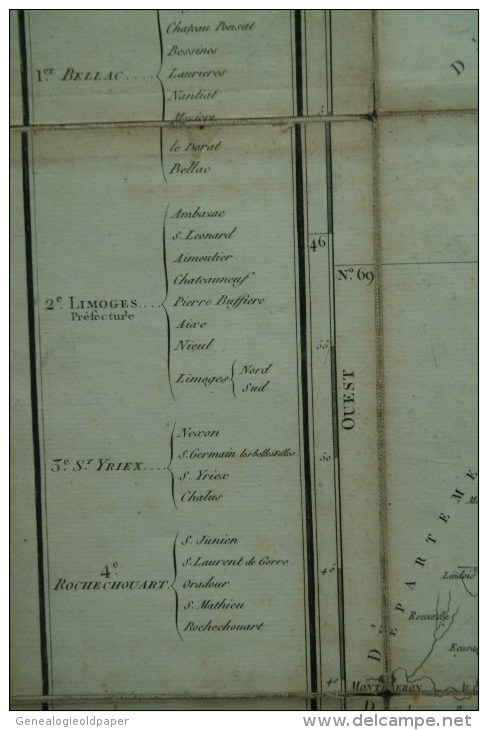 Chateau Ponsat
Bessines
1.er BELLAC....
Laurieres
Nantiat
Meziere
le Dorat
Bellac
Ambazac
S. Leonard
Aimoutier
Chateauneuf
2e. LIMOGES....
Préfecture
Pierre Buffiere
Aixe
Nieul
Limoges
Nord
Sud
3e. St. YRIEX....
Nexon
S. Germain les belles filles
S. Yriex
Chalus
4e.
ROCHECHOUART.
S. Junien
S. Laurent de Gorro
Oradour
S. Mathieu
Rochechouart
46
No. 69
55
OUEST
50
45
40
D'
DÉPARTEME
D'
Roussde
MONTBERON
D
Genealogieoldpaper
www.delcampe.net